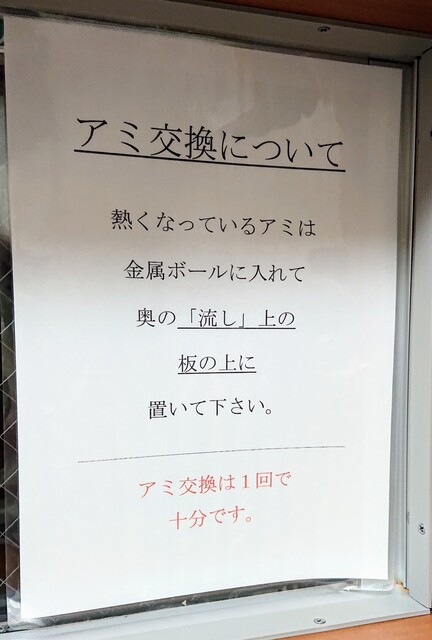 アミ交換について
熱くなっているアミは
金属ボールに入れて
奥の「流し」上の
板の上に
置いて下さい。
アミ交換は１回で
十分です。